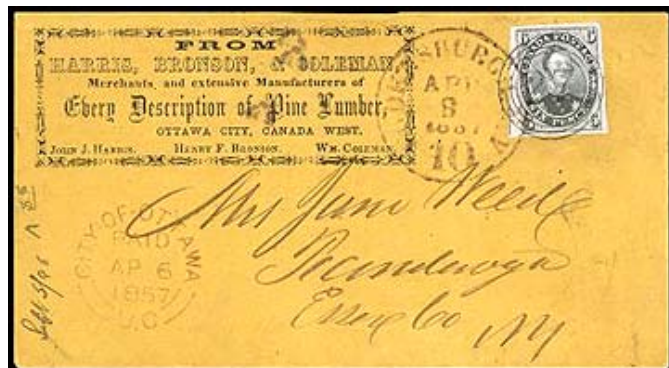 FROM
HARRIS, BRONSON, & COLEMAN,
Merchants, and extensive Manufacturers of
Every Description of Pine Lumber,
OTTAWA CITY, CANADA WEST.
JOHN J. HARRIS. HENRY F. BRONSON. WM. COLEMAN.
APR
8
1857
10
CANADA POSTAGE
SIX PENCE
Mrs Jane Weed
Ticonderoga
Essex Co NY
CITY OF OTTAWA
PAID
AP 6
1857
U.C